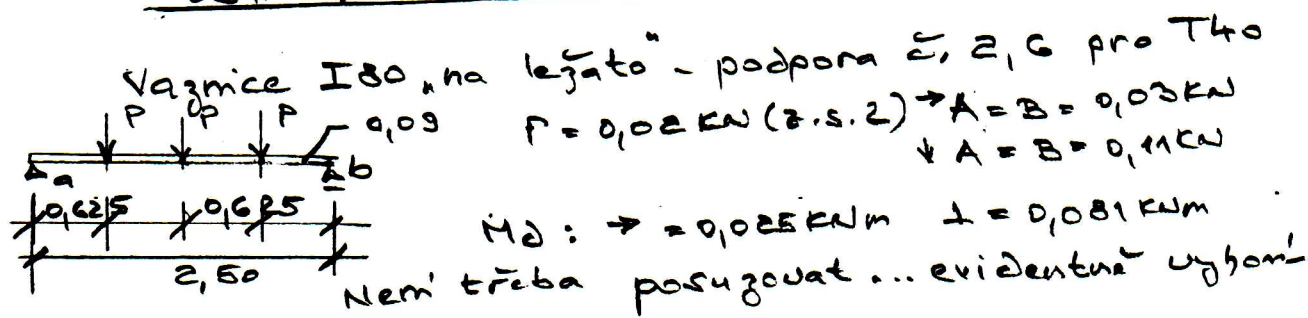 Vaznice I80 „na ležato" - podpora č. 2,6 pro T40
P P P 0,09 P = 0,02 KN (z.s.2) → A = B = 0,03 KN
↓ A = B = 0,11 KN
a b
0,625 0,625
Md : → = 0,025 KNm ⊥ = 0,081 KNm
2,50
Není třeba posuzovat ... evidentně vyhoví